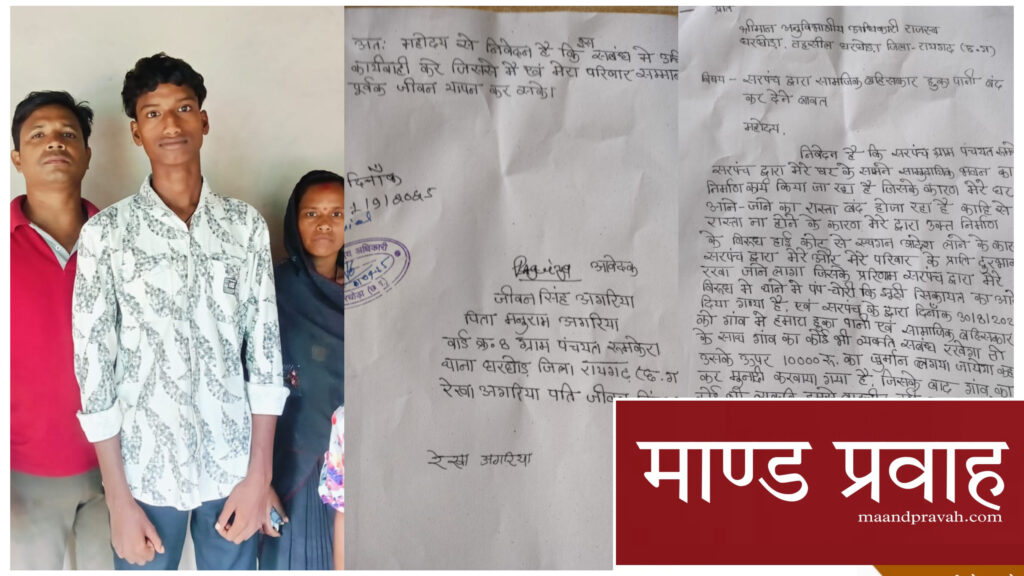 प्रति
श्रीमान अनुविभागीय अधिकारी राजस्व
घरघोड़ा, तहसील घरघोड़ा जिला-रायगढ़ (छ.ग)
विषय - सरपंच द्वारा सामाजिक बहिसकार हुका पानी बंद
कर देने बावत
महोदय,
निवेदन है कि सरपंच ग्राम पंचयत
सरपंच द्वारा मेरे घर के सामने सामुदायिक भवन का
निर्माण कार्य किया जा रहा है जिसके कारण मेरे घर
आने-जाने का रास्ता बंद होजा रहा है
रास्ता ना होने के कारण मेरे द्वारा उक्त निर्माण
के विरूध हाई कोर्ट से स्थगन आदेश लाने के
सरपंच द्वारा मेरे और मेरे परिवार के प्रति
रखा जाने लगा जिसके सरपंच द्वारा मेरे
विरूध में थाने में पंप चोरी कि झूठी सिकायत का
दिया गया है, एवं सरपंच के द्वारा दिनाँक 30/8/202
को गांव में हमारा हुका पानी एवं सामाजिक बहिसकार
के साथ गांव का कोई भी व्यक्ति संबंध रखेगा तो
उसके उपर 10000 रू. का जुर्माना लगाया जायेगा
कर मुनादी करवाया गया है, जिसके बाद गांव का
अतः महोदय से निवेदन है कि इस संबंध में
कार्यवाही करे जिससे मैं एवं मेरा परिवार सम्मान
पूर्वक जीवन यापन कर सके।
दिनाँक
1/9/2025
अधिकारी
आवेदक
जीवन सिंह अगरिया
पिता मनुराम अगरिया
वार्ड क्र-8 ग्राम पंचयत रूमकेरा
थाना घरघोड़ा जिला रायगढ़ (छ.ग
रेखा अगरिया पति जीवन
रेखा अगरिया
माण्ड प्रवाह
maandpravah.com